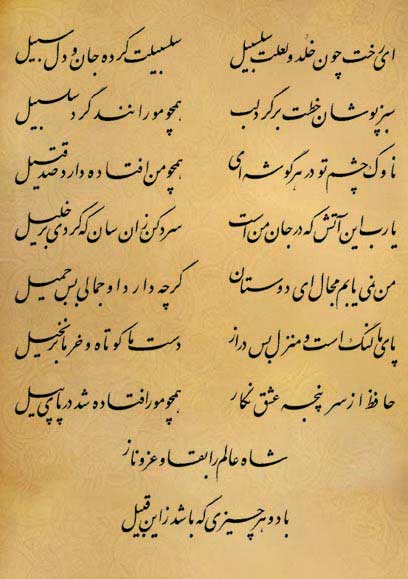 ای رخت چون خلد و لعلت سلسبیل سلسبیلت کرده جان و دل سبیل
سبزپوشان خطت بر گرد لب همچو مورانند گرد سلسبیل
ناوک چشم تو در هر گوشه ای همچو من افتاده دارد صد قتیل
یارب این آتش که در جان من است سرد کن زان سان که کردی بر خلیل
من نمی یابم مجال ای دوستان گرچه دارد او جمالی بس جمیل
پای ما لنگ است و منزل بس دراز دست ما کوتاه و خرما بر نخیل
حافظ از سر پنجه عشق نگار همچو مور افتاده شد در پای پیل
شاه عالم را بقا و عز و ناز
باد و هر چیزی که باشد زاین قبیل